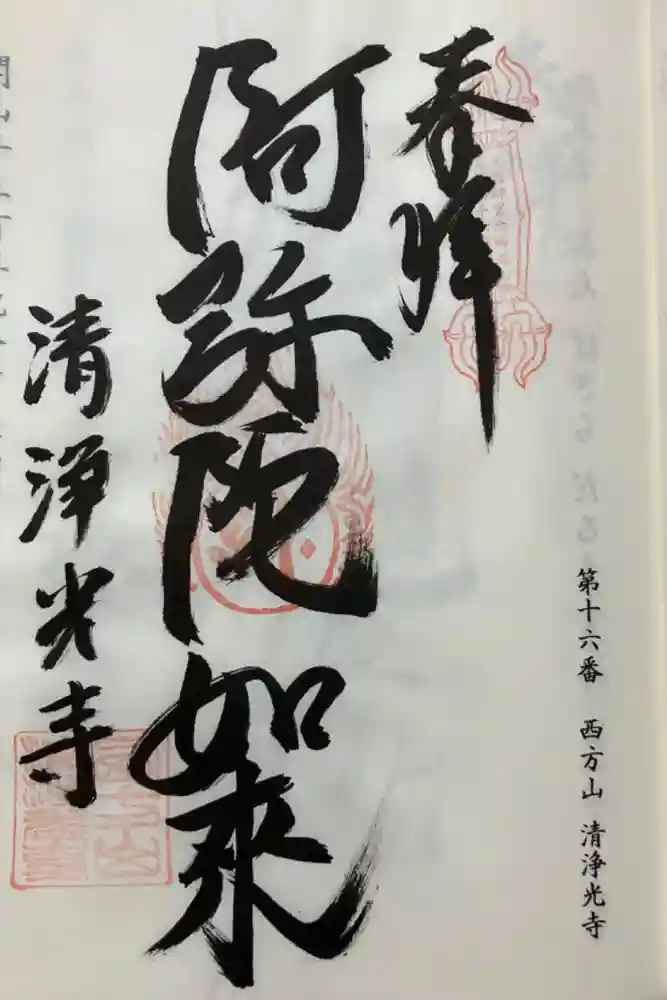 第十六番 西方山 清浄光寺
奉拝
阿弥陀如来
清浄光寺